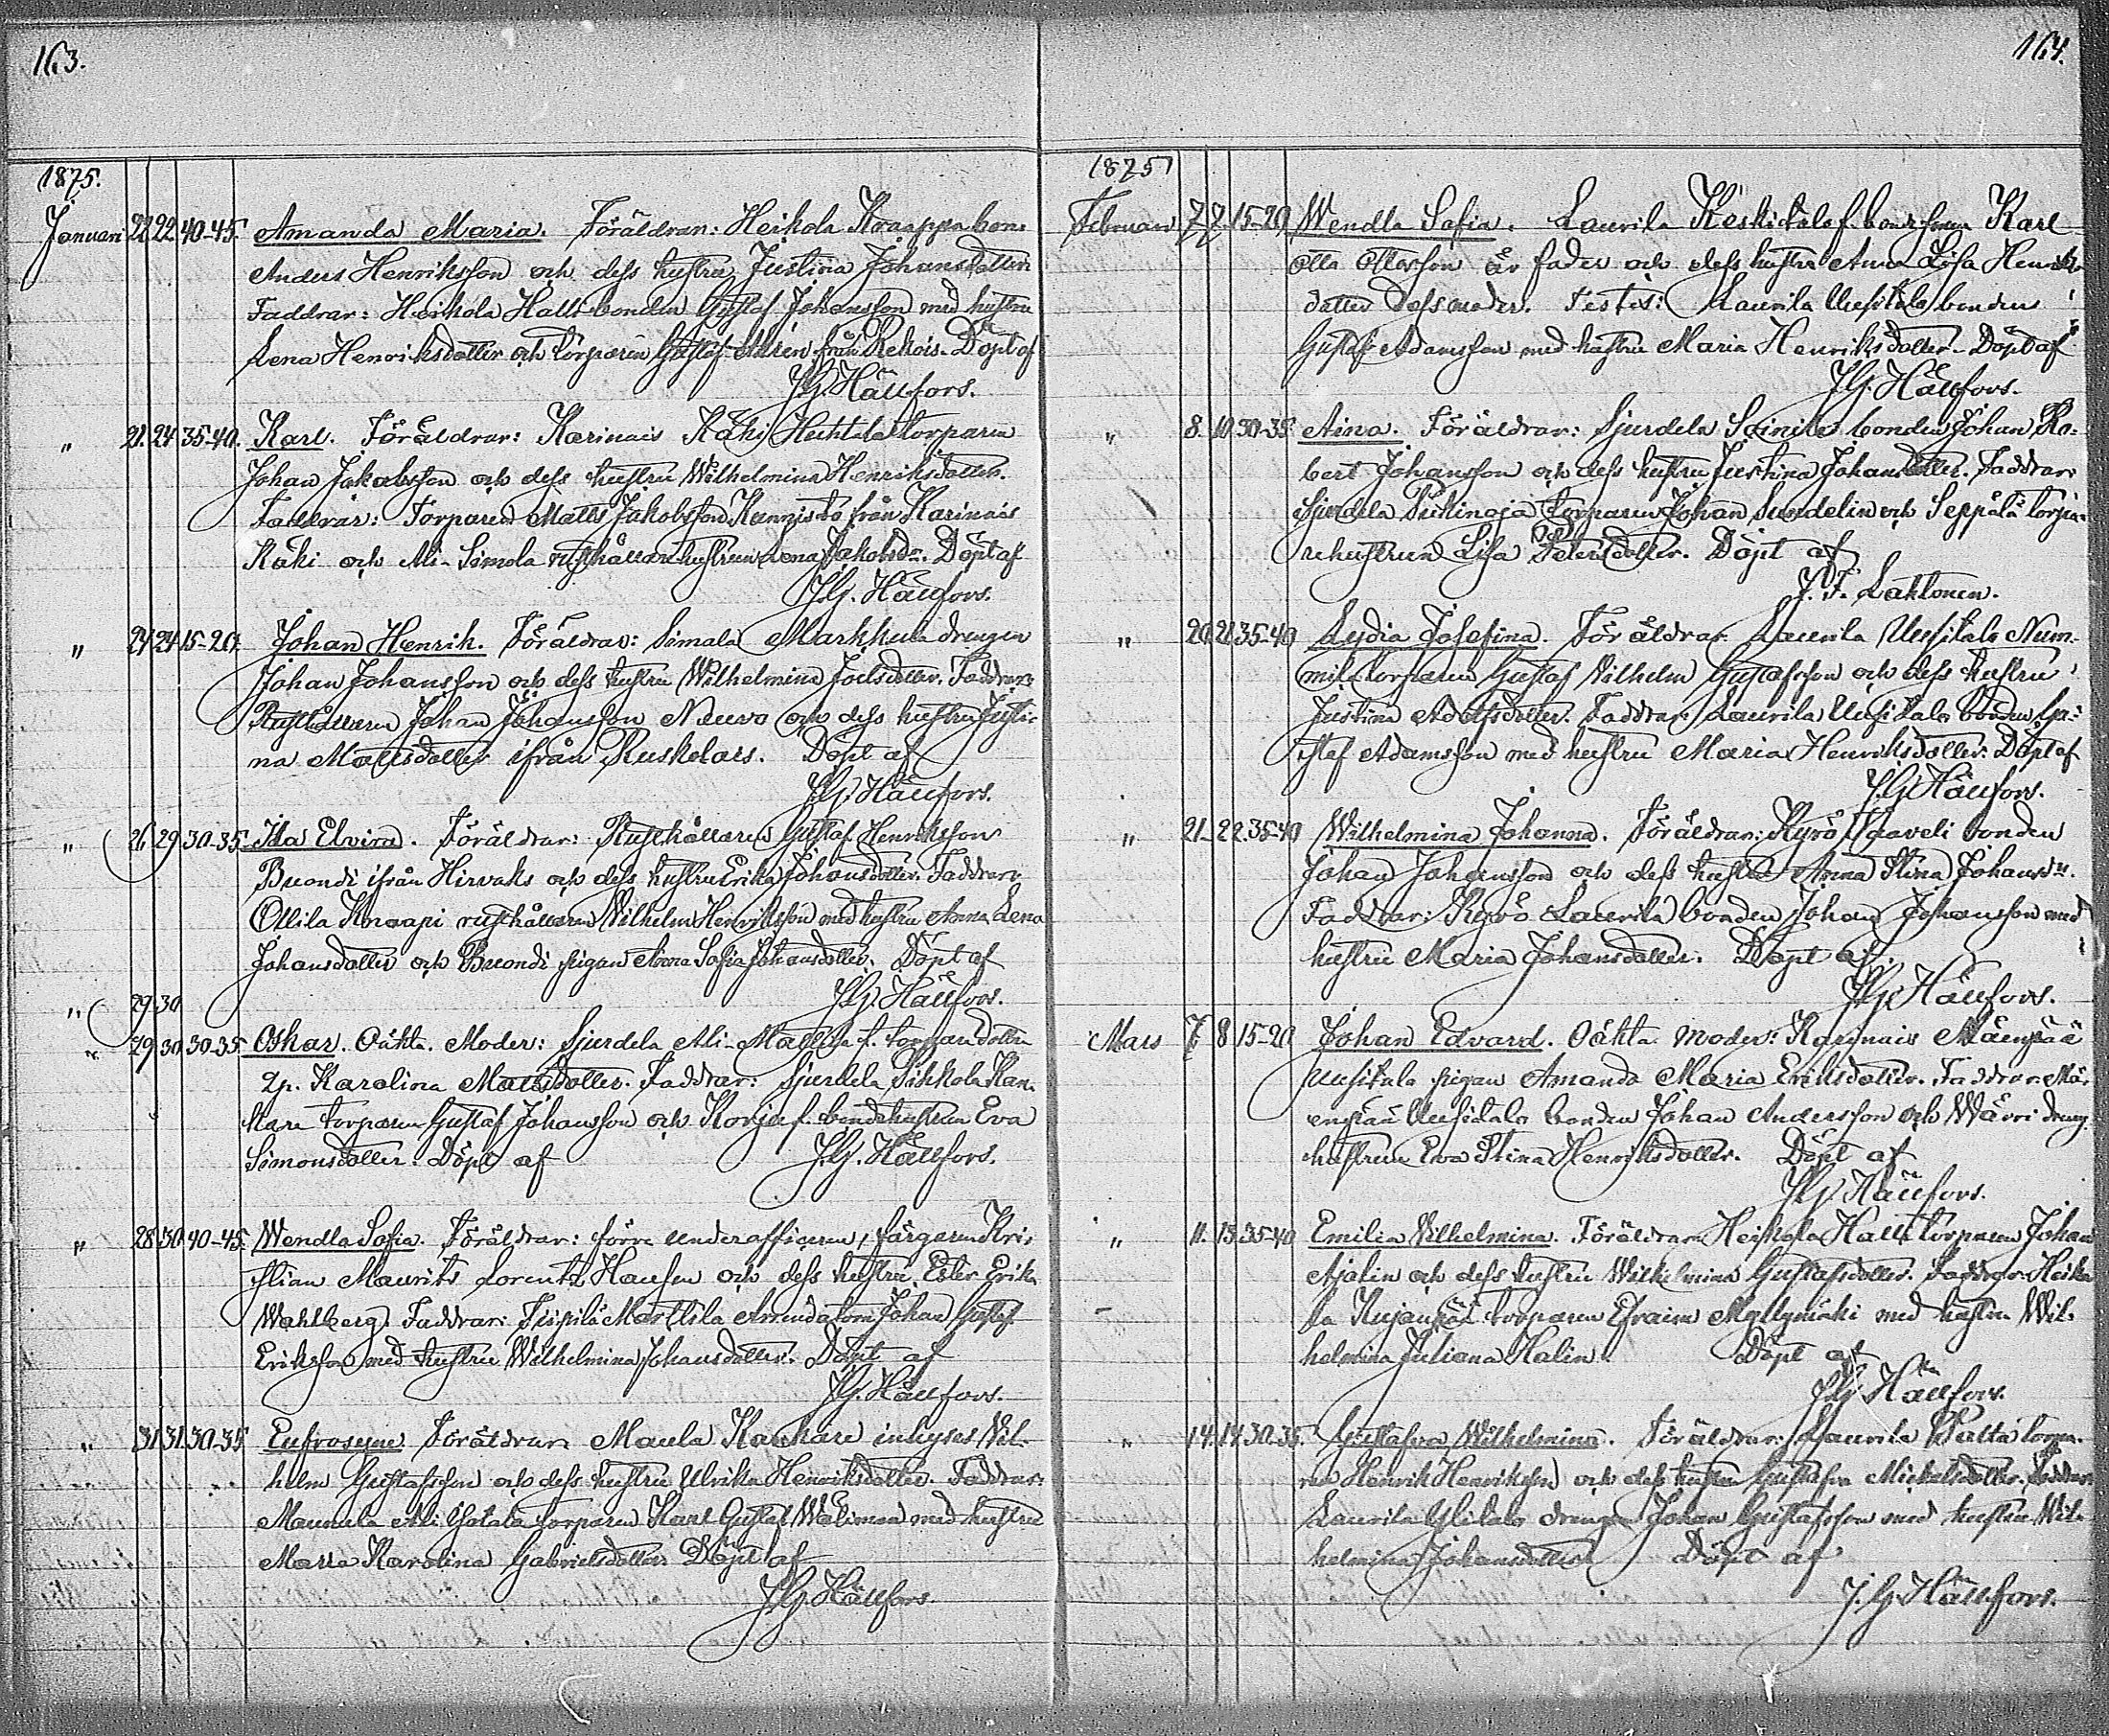 163.
1875.
Januari 22 22 40-45. Amanda Maria. Föräldrar: Heikola Knaappa bon.
Anders Henriksson och dess hustru Justina Johansdotter
Faddrar: Heikola Halli bonden Gustaf Johansson med hustru
Lena Henriksdotter och torparen Gustaf från Rekois. Döpt af
J.G. Hällfors.
" 21. 24 35-40. Karl. Föräldrar: Karinais Käki Heihtala torparen
Johan Jakobsson och dess hustru Wilhelmina Henriksdotter.
Faddrar: Torparen Matts Jakobsson Kannisto från Karinais
Käki och Ali-Simola rusthållarehustrun Lena Jakobsdr. Döpt af
J.G. Hällfors.
" 24 24 15-20. Johan Henrik. Föräldrar: Simala Markkula drengen
Johan Johansson och dess hustru Wilhelmina Joelsdotter. Faddrar:
Rusthållaren Johan Johansson Neuvo och dess hustru Justi-
na Mattsdotter ifrån Ruskelais. Döpt af
J.G. Hällfors.
" 26 29 30-35. Ida Elvira. Föräldrar: Rusthållaren Gustaf Henriksson
Buondi ifrån Hirvaks och dess hustru Erika Johansdotter. Faddrar:
Ollila Knaapi rusthållaren Wilhelm Henriksson med hustru Anna Lena
Johansdotter och Buondi pigan Anna Sofia Johansdotter. Döpt af
J.G. Hällfors.
" 29 30
" 29 30 30-35 Oskar. Oäkta. Moder: Sjurdela Ali-Mattila f. torparedotter
Karolina Mattsdotter. Faddrar: Sjurdela Sihkola Kan-
kare torparen Gustaf Johansson och Korju f. bondehustrun Eva
Simonsdotter. Döpt af J.G. Hällfors.
" 28 30 40-45. Wendla Sofia. Föräldrar: förre underofficeren, färgaren Kri-
stian Maurits Lorentz Hansen och dess hustru Ester Erika
Wahlberg. Faddrar: Tuipilä Marttila Arrendatorn Johan Gustaf
Eriksson med hustru Wilhelmina Johansdotter. Döpt af
J.G. Hällfors.
" 31 31 30-35 Eufrosyne. Föräldrar: Maula Kankare inhyses Wil-
helm Gustafsson och dess hustru Ulrika Henriksdotter. Faddrar:
Maunula Ali torparen Karl Gustaf Walimaa med hustru
Maria Karolina Gabrielsdotter. Döpt af
J.G. Hällfors
164.
1875
Februari 7 7. 15-20 Wendla Sofia. Laurila Keskitalo f. bondesonen Karl
Otto Ottosson är fader och dess hustru Anna Lisa Henriks-
dotter dess moder. Testes: Laurila Uusitalo bonden
Gustaf Adamsson med hustru Maria Henriksdotter. Döpt af
J.G. Hällfors.
" 8. 10 30-35. Aina. Föräldrar: Sjurdela Seinilä bonden Johan Ro-
bert Johansson och dess hustru Justina Johansdotter. Faddrar:
Sjurdela torparen Johan Sundelin och Seppälä torpa-
rehustrun Lisa Petersdotter. Döpt af
J.F. Lahtonen.
" 20 21 35-40 Lydia Josefina. Föräldrar: Laurila Uusitalo Num-
mila torparen Gustaf Vilhelm Gustafsson och dess hustru
Justina Adolfsdotter. Faddrar: Laurila Uusitalo bonden Gu-
staf Adamsson med hustru Maria Henriksdotter. Döpt af
J.G. Hällfors.
" 21. 22. 35-40 Wilhelmina Johanna. Föräldrar: Kyrö Paaveli bonden
Johan Johansson och dess hustru Anna Stina Johansdr.
Faddrar: Kyrö Laurila bonden Johan Johansson med
hustru Maria Johansdotter. Döpt af
J.G. Hällfors.
Mars 7. 8 15-20 Johan Edvard. Oäkta. Moder: Karinais Mäenpää
Uusitalo pigan Amanda Maria Eriksdotter. Faddrar: Mä-
enpää Uusitalo bonden Johan Andersson och Wävri dreng-
hustrun Eva Stina Henriksdotter. Döpt af
J.G. Hällfors.
" 11. 13. 35-40 Emilia Wilhelmina. Föräldrar: Heikola Halli torparen Johan
Ajalin och dess hustru Wilhelmina Gustafsdotter. Faddrar: Heiko-
la Kujanpää torparen Efraim Myllymäki med hustru Wil-
helmina Juliana Halin. Döpt af
J.G. Hällfors.
" 14. 14. 30-35. Gustafva Wilhelmina. Föräldrar: Laurila Palta torpa-
ren Henrik Henriksson och dess hustru Gustafva Mickelsdotter. Faddrar:
Laurila Ylitalo drengen Johan Gustafsson med hustru Wil-
helmina Johansdotter. Döpt af
J.G. Hällfors.